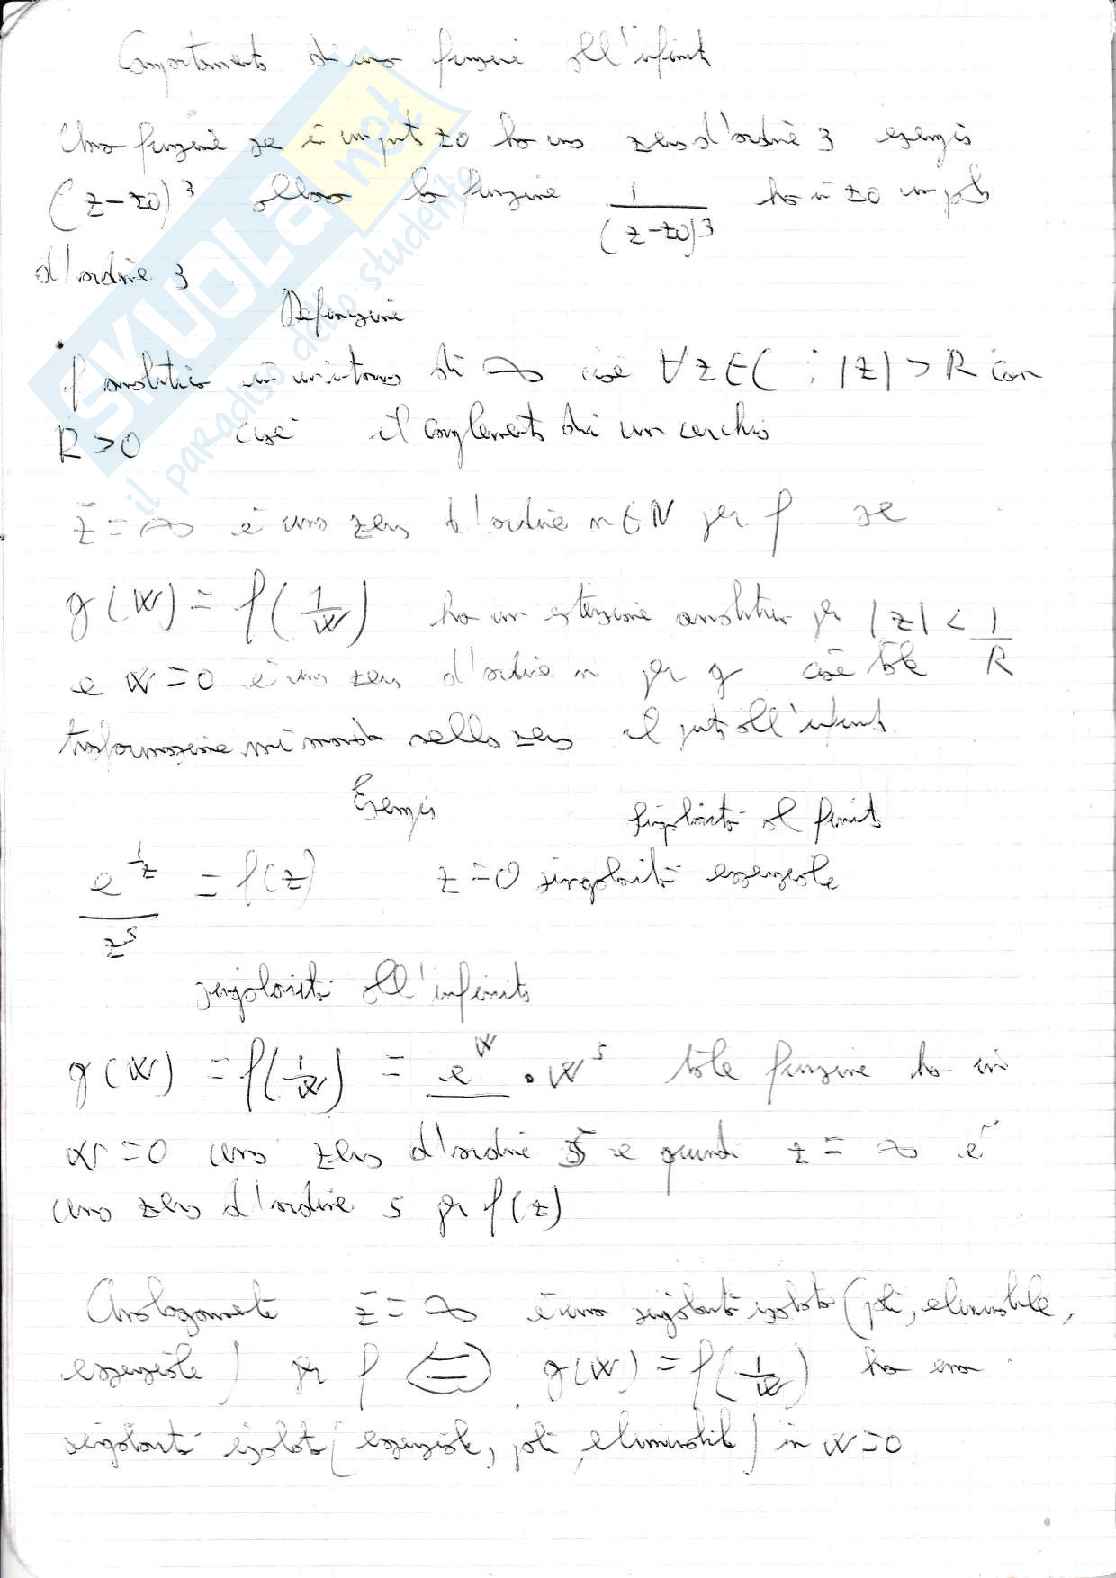 Comportamento di una funzione all'infinito
Una funzione se in un punto z0 ha uno zero d'ordine 3 esempio
(z-z0)^3 allora la funzione 1/(z-z0)^3 ha in z0 un polo
d'ordine 3
Definizione
f analitica in un intorno di ∞ cioè ∀z∈C : |z| > R con
R>0 cioè il complemento di un cerchio
z̄ = ∞ è uno zero d'ordine n∈N per f se
g(w) = f(1/w) ha un'estensione analitica per |z| < 1/R
e w=0 è uno zero d'ordine n per g cioè tale
trasformazione mi manda nello zero il punto all'infinito
Esempio
singolarità al finito
e^(1/z)/z^5 = f(z) z=0 singolarità essenziale
singolarità all'infinito
g(w) = f(1/w) = e^w · w^5 tale funzione ha in
w=0 uno zero d'ordine 5 e quindi z = ∞ è
uno zero d'ordine 5 per f(z)
Analogamente z̄ = ∞ è una singolarità isolata (poli, eliminabile,
essenziale) per f ⇔ g(w) = f(1/w) ha una
singolarità isolata (essenziale, poli, eliminabile) in w=0
SKUOLA.net
il paradiso dello studente